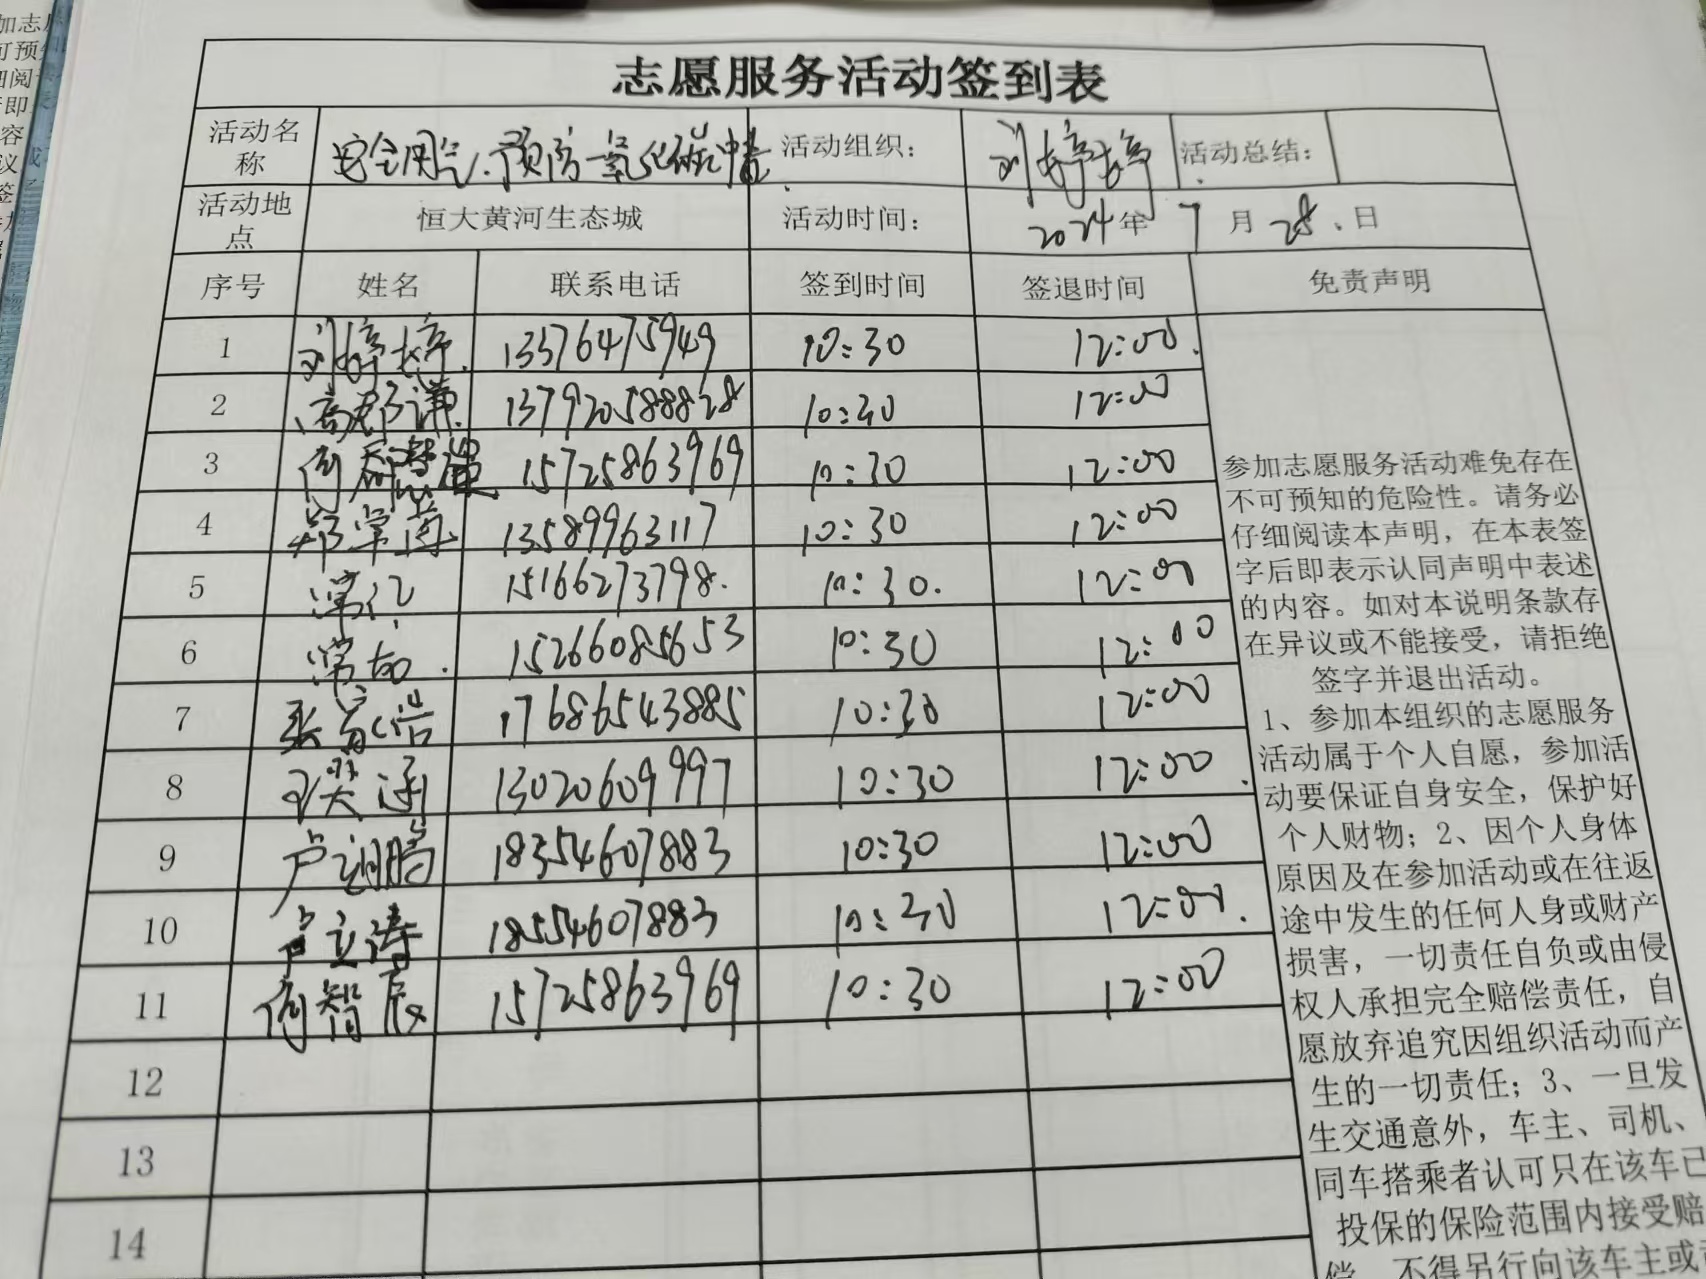 志愿服务活动签到表
活动名称 安全用气、预防一氧化碳中毒 活动组织： 刘婷婷 活动总结：
活动地点 恒大黄河生态城 活动时间： 2024年 7 月 28 日
序号 姓名 联系电话 签到时间 签退时间 免责声明
1 刘婷婷 13376475949 10:30 12:00
2 137920588828 10:30 12:00
3 15725863969 10:30 12:00
4 13589963117 10:30 12:00
5 15166273798 10:30 12:00
6 15266085653 10:30 12:00
7 17686543885 10:30 12:00
8 13020609997 10:30 12:00
9 卢翊鹏 18354607883 10:30 12:00
10 卢立涛 18554607883 10:30 12:00
11 何智辰 15725863969 10:30 12:00
12
13
14
参加志愿服务活动难免存在
不可预知的危险性。请务必
仔细阅读本声明，在本表签
字后即表示认同声明中表述
的内容。如对本说明条款存
在异议或不能接受，请拒绝
签字并退出活动。
1、参加本组织的志愿服务
活动属于个人自愿，参加活
动要保证自身安全，保护好
个人财物；2、因个人身体
原因及在参加活动或在往返
途中发生的任何人身或财产
损害，一切责任自负或由侵
权人承担完全赔偿责任，自
愿放弃追究因组织活动而产
生的一切责任；3、一旦发
生交通意外，车主、司机、
同车搭乘者认可只在该车已
投保的保险范围内接受赔
偿，不得另行向该车主或